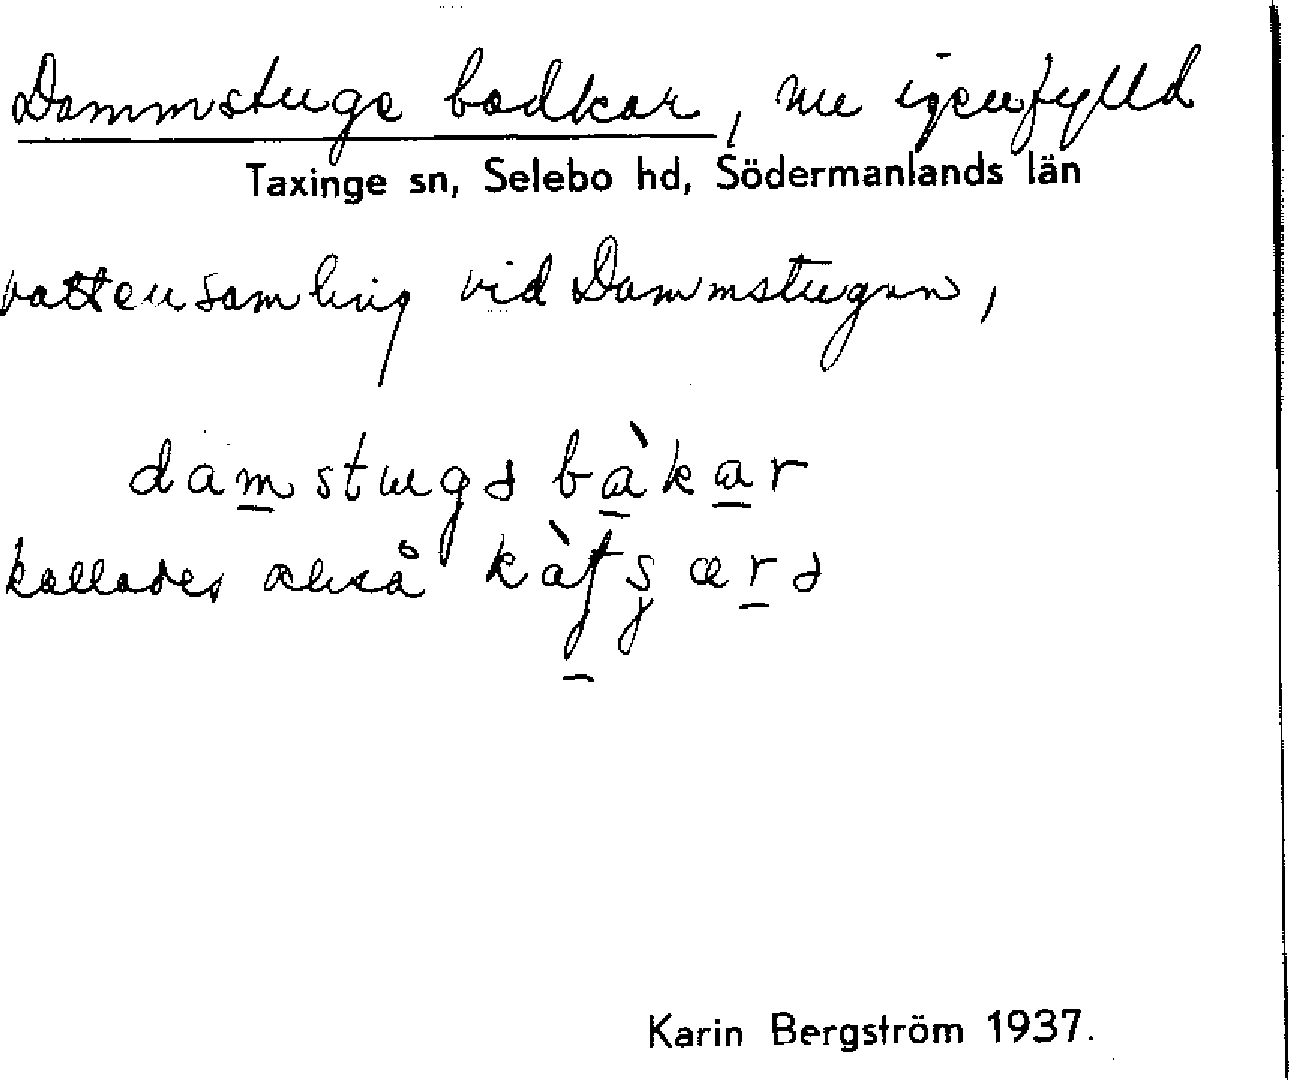 Dammstuge badkar, nu igenfylld
Taxinge sn, Selebo hd, Södermanlands län
vattensamling vid Dammstugan,
damstugə bàkar
kallades också
Karin Bergström 1937.